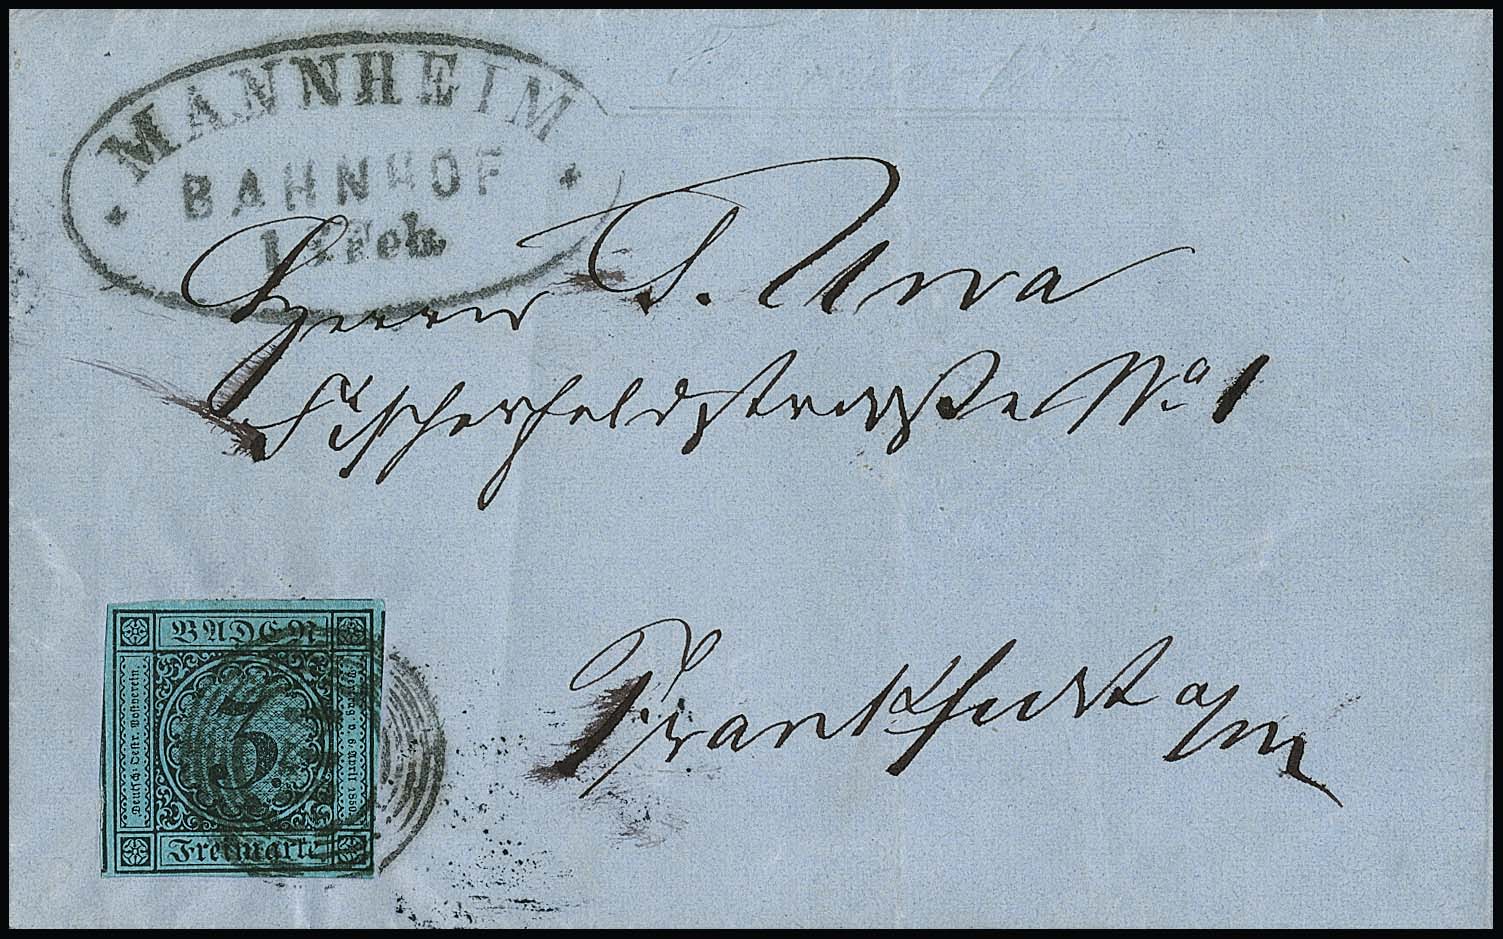 MANNHEIM
BAHNHOF
Feb.
Herrn
Fischerfeldstraße No 1
Frankfurt a/m
BADEN
Deutsch: Oestr. Postverein.
3
Vertrag v. 6 April 1850
Freimarke